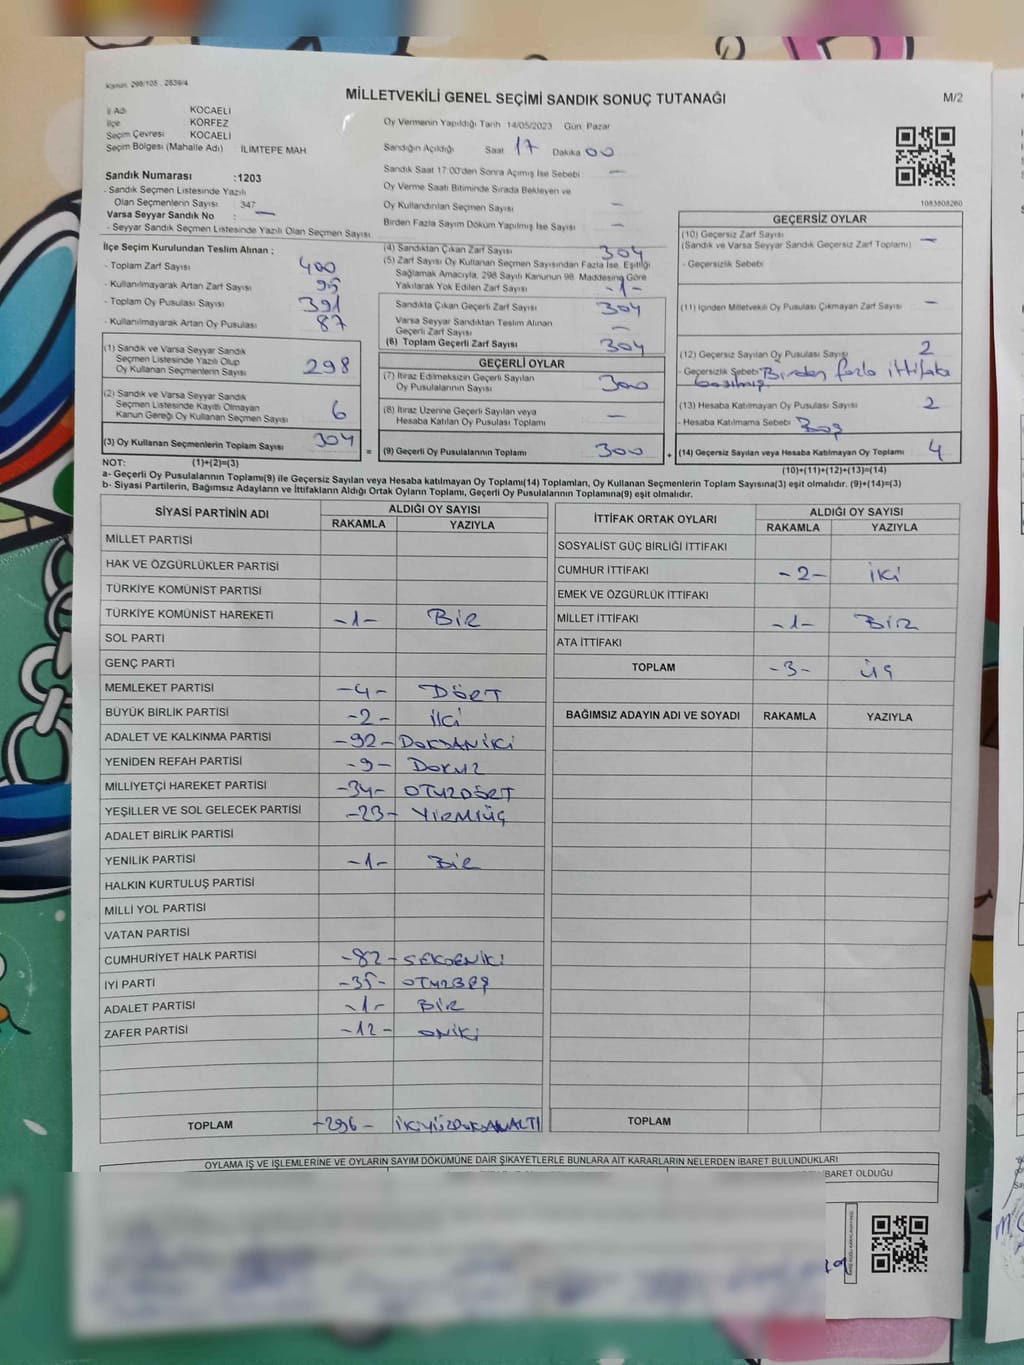 Kanun: 298/105 , 2839/4
MİLLETVEKİLİ GENEL SEÇİMİ SANDIK SONUÇ TUTANAĞI
M/2
İl Adı KOCAELİ
İlçe KÖRFEZ
Seçim Çevresi KOCAELİ
Seçim Bölgesi (Mahalle Adı) İLİMTEPE MAH
Sandık Numarası :1203
- Sandık Seçmen Listesinde Yazılı
Olan Seçmenlerin Sayısı 347
Varsa Seyyar Sandık No : —
- Seyyar Sandık Seçmen Listesinde Yazılı Olan Seçmen Sayısı
Oy Vermenin Yapıldığı Tarih 14/05/2023 Gün: Pazar
Sandığın Açıldığı Saat 17 Dakika 00
Sandık Saat 17:00'den Sonra Açımış İse Sebebi —
Oy Verme Saati Bitiminde Sırada Bekleyen ve
Oy Kullandırılan Seçmen Sayısı —
Birden Fazla Sayım Döküm Yapılmış İse Sayısı —
1083808260
İlçe Seçim Kurulundan Teslim Alınan ;
- Toplam Zarf Sayısı 400
- Kullanılmayarak Artan Zarf Sayısı 95
- Toplam Oy Pusulası Sayısı 391
- Kullanılmayarak Artan Oy Pusulası 87
(1) Sandık ve Varsa Seyyar Sandık
Seçmen Listesinde Yazılı Olup
Oy Kullanan Seçmenlerin Sayısı 298
(2) Sandık ve Varsa Seyyar Sandık
Seçmen Listesinde Kayıtlı Olmayan
Kanun Gereği Oy Kullanan Seçmen Sayısı 6
(3) Oy Kullanan Seçmenlerin Toplam Sayısı 304
(4) Sandıktan Çıkan Zarf Sayısı 304
(5) Zarf Sayısı Oy Kullanan Seçmen Sayısından Fazla İse, Eşitliği
Sağlamak Amacıyla, 298 Sayılı Kanunun 98. Maddesine Göre
Yakılarak Yok Edilen Zarf Sayısı -1-
Sandıkta Çıkan Geçerli Zarf Sayısı 304
Varsa Seyyar Sandıktan Teslim Alınan
Geçerli Zarf Sayısı —
(6) Toplam Geçerli Zarf Sayısı 304
GEÇERLİ OYLAR
(7) İtiraz Edilmeksizin Geçerli Sayılan
Oy Pusulalarının Sayısı 300
(8) İtiraz Üzerine Geçerli Sayılan veya
Hesaba Katılan Oy Pusulası Toplamı —
= (9) Geçerli Oy Pusulalarının Toplamı 300
GEÇERSİZ OYLAR
(10) Geçersiz Zarf Sayısı
(Sandık ve Varsa Seyyar Sandık Geçersiz Zarf Toplamı) —
- Geçersizlik Sebebi
(11) İçinden Milletvekili Oy Pusulası Çıkmayan Zarf Sayısı —
(12) Geçersiz Sayılan Oy Pusulası Sayısı 2
- Geçersizlik Sebebi Birden fazla ittifaka
basılmış
(13) Hesaba Katılmayan Oy Pusulası Sayısı 2
- Hesaba Katılmama Sebebi Boş
+ (14) Geçersiz Sayılan veya Hesaba Katılmayan Oy Toplamı 4
NOT: (1)+(2)=(3) (10)+(11)+(12)+(13)=(14)
a- Geçerli Oy Pusulalarının Toplamı(9) ile Geçersiz Sayılan veya Hesaba katılmayan Oy Toplamı(14) Toplamları, Oy Kullanan Seçmenlerin Toplam Sayısına(3) eşit olmalıdır. (9)+(14)=(3)
b- Siyasi Partilerin, Bağımsız Adayların ve İttifakların Aldığı Ortak Oyların Toplamı, Geçerli Oy Pusulalarının Toplamına(9) eşit olmalıdır.
SİYASİ PARTİNİN ADI ALDIĞI OY SAYISI
RAKAMLA YAZIYLA
MİLLET PARTİSİ
HAK VE ÖZGÜRLÜKLER PARTİSİ
TÜRKİYE KOMÜNİST PARTİSİ
TÜRKİYE KOMÜNİST HAREKETİ -1- BİR
SOL PARTİ
GENÇ PARTİ
MEMLEKET PARTİSİ -4- DÖRT
BÜYÜK BİRLİK PARTİSİ -2- İKİ
ADALET VE KALKINMA PARTİSİ -92- DOKSANİKİ
YENİDEN REFAH PARTİSİ -9- DOKUZ
MİLLİYETÇİ HAREKET PARTİSİ -34- OTUZDÖRT
YEŞİLLER VE SOL GELECEK PARTİSİ -23- YİRMİÜÇ
ADALET BİRLİK PARTİSİ
YENİLİK PARTİSİ -1- BİR
HALKIN KURTULUŞ PARTİSİ
MİLLİ YOL PARTİSİ
VATAN PARTİSİ
CUMHURİYET HALK PARTİSİ -82- SEKSENİKİ
İYİ PARTİ -35- OTUZBEŞ
ADALET PARTİSİ -1- BİR
ZAFER PARTİSİ -12- ONİKİ
TOPLAM -296- İKİYÜZDOKSANALTI
İTTİFAK ORTAK OYLARI ALDIĞI OY SAYISI
RAKAMLA YAZIYLA
SOSYALİST GÜÇ BİRLİĞİ İTTİFAKI
CUMHUR İTTİFAKI -2- İKİ
EMEK VE ÖZGÜRLÜK İTTİFAKI
MİLLET İTTİFAKI -1- BİR
ATA İTTİFAKI
TOPLAM -3- ÜÇ
BAĞIMSIZ ADAYIN ADI VE SOYADI RAKAMLA YAZIYLA
TOPLAM
OYLAMA İŞ VE İŞLEMLERİNE VE OYLARIN SAYIM DÖKÜMÜNE DAİR ŞİKAYETLERLE BUNLARA AİT KARARLARIN NELERDEN İBARET BULUNDUKLARI
BARET OLDUĞU